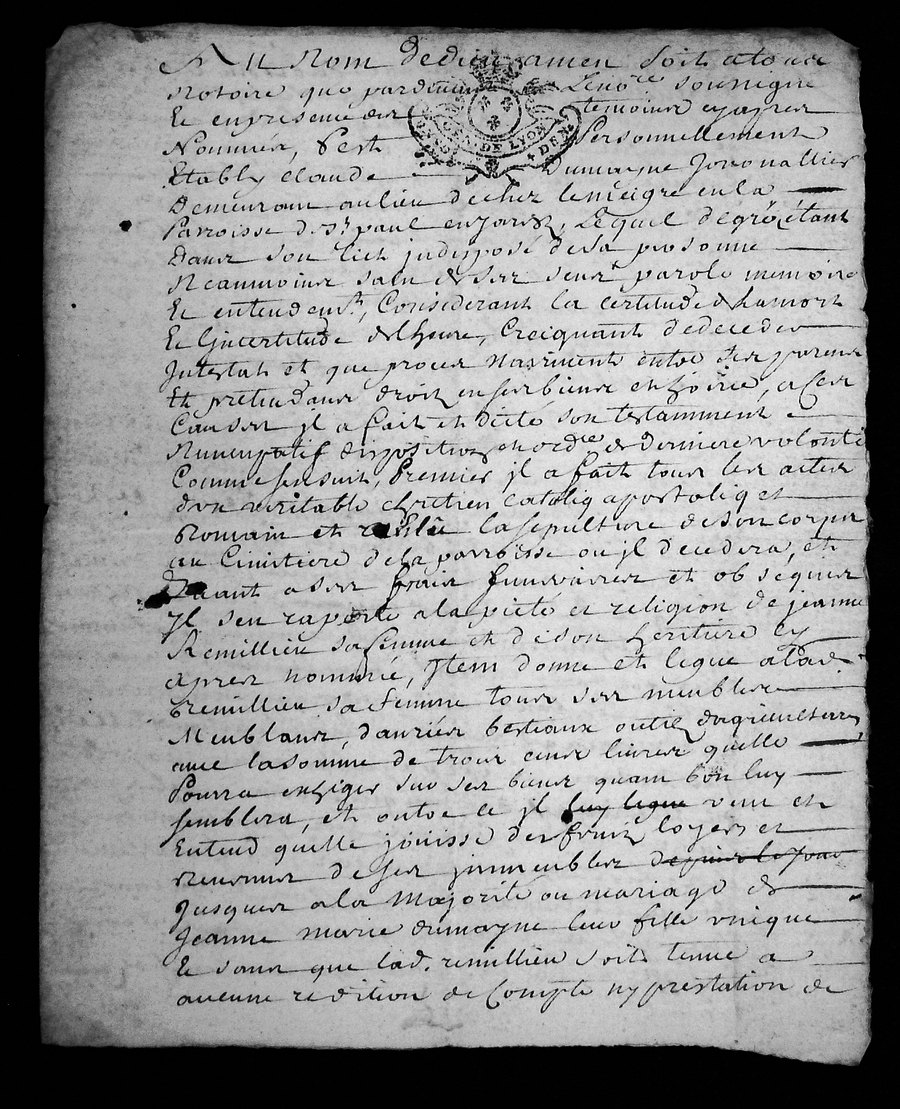 Au Nom de dieu amen soit a tous
Notoire que pardevant Le no.re soussigné
Et en presence des temoins cy apres
Nommés, s'est Personnellement
Etably claude Dumayne Journallier
Demeurant au lieu de chez le meigre en la
Parroisse de s.t paul en jarez, Lequel de gré étant
Dans son lict indisposé de sa personne
Neanmoins sain de ses sens, parole memoire
Et entendem.t, Considerant la certitude de la mort
Et L'jncertitude de l'heure, Craignant de deceder
Intestat et que proces naissent entre ses parens
Et pretendans droit en ses biens et hoirie, a ces
Causes jl a fait et dicté son testamment
Nuncupatif disposition et ord.re de derniere volonté
Comme sensuit, Premier jl a fait tous les actes
d'un veritable chretien catoliq apostoliq et
Romain et la sepulture de son corps
au Cimitiere de la parroisse ou jl decedera, et
Quant a ses frais funeraires et obseques
Jl s'en raporte a la pieté et religion de jeanne
Remillieu sa femme et de son heritiere cy
apres nommée, Jtem donne et legue a lad.
remillieu sa femme tous ses meubles
Meublans, danrées bestiaux outils d'agriculture
avec la somme de trois cens livres quelle
Pourra exziger sur ses biens quant bon luy
semblera, et outre ce jl luy legue veut et
Entend quelle jouisse des fruits loyers et
revenus de ses jmmeubles
Jusques a la majorité ou mariage de
Jeanne marie dumayne leur fille unique
Et sans que lad. remillieu soit tenue a
aucune redition de Compte ny prestation de
GEN. DE LYON